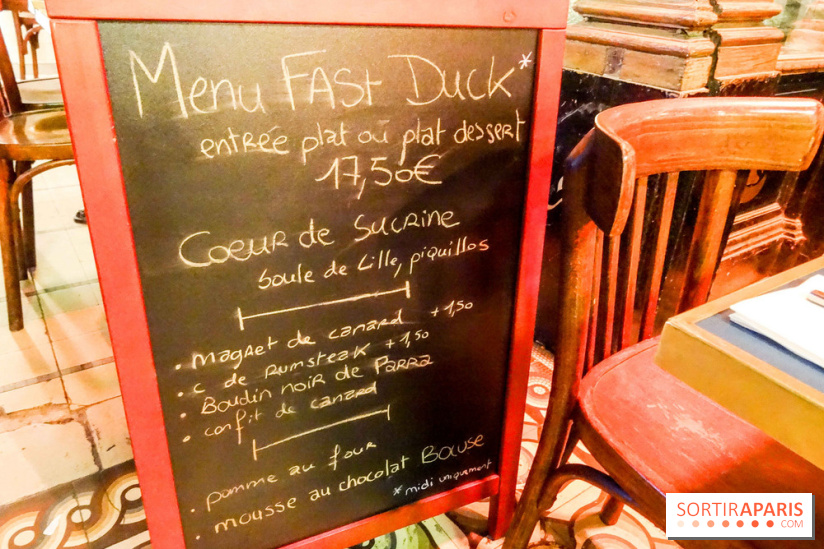 Menu FASt DUCK*
entrée plat ou plat dessert
17,50€
Coeur de Sucrine
boule de Lille, piquillos
• Magret de canard +1,50
• C de Rumsteak +1,50
• Boudin noir de Parra
• confit de canard
• pomme au four
• mousse au chocolat Bocuse
*midi uniquement
SORTIRAPARIS
.COM